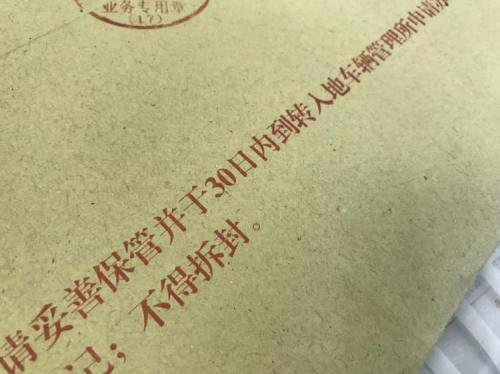 业务专用章
(17)
请妥善保管并于30日内到转入地车辆管理所申请办
记；不得拆封。